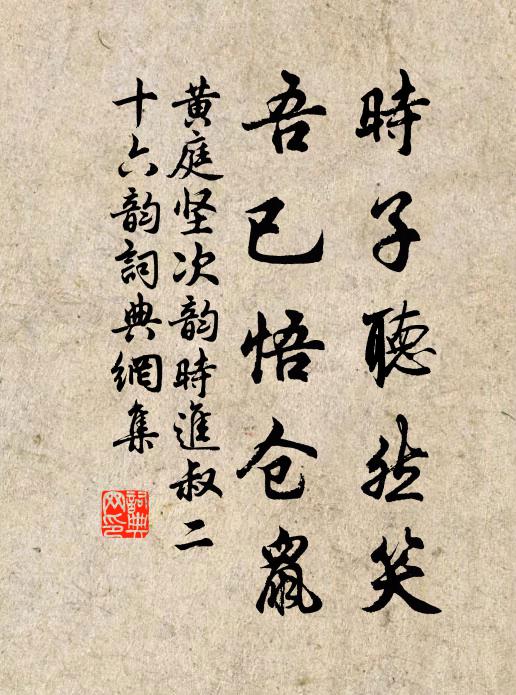 時子聽然笑
吾已悟仓鼠
黄庭坚次韵時進叔二
十六韵詞典網集
詞典网印